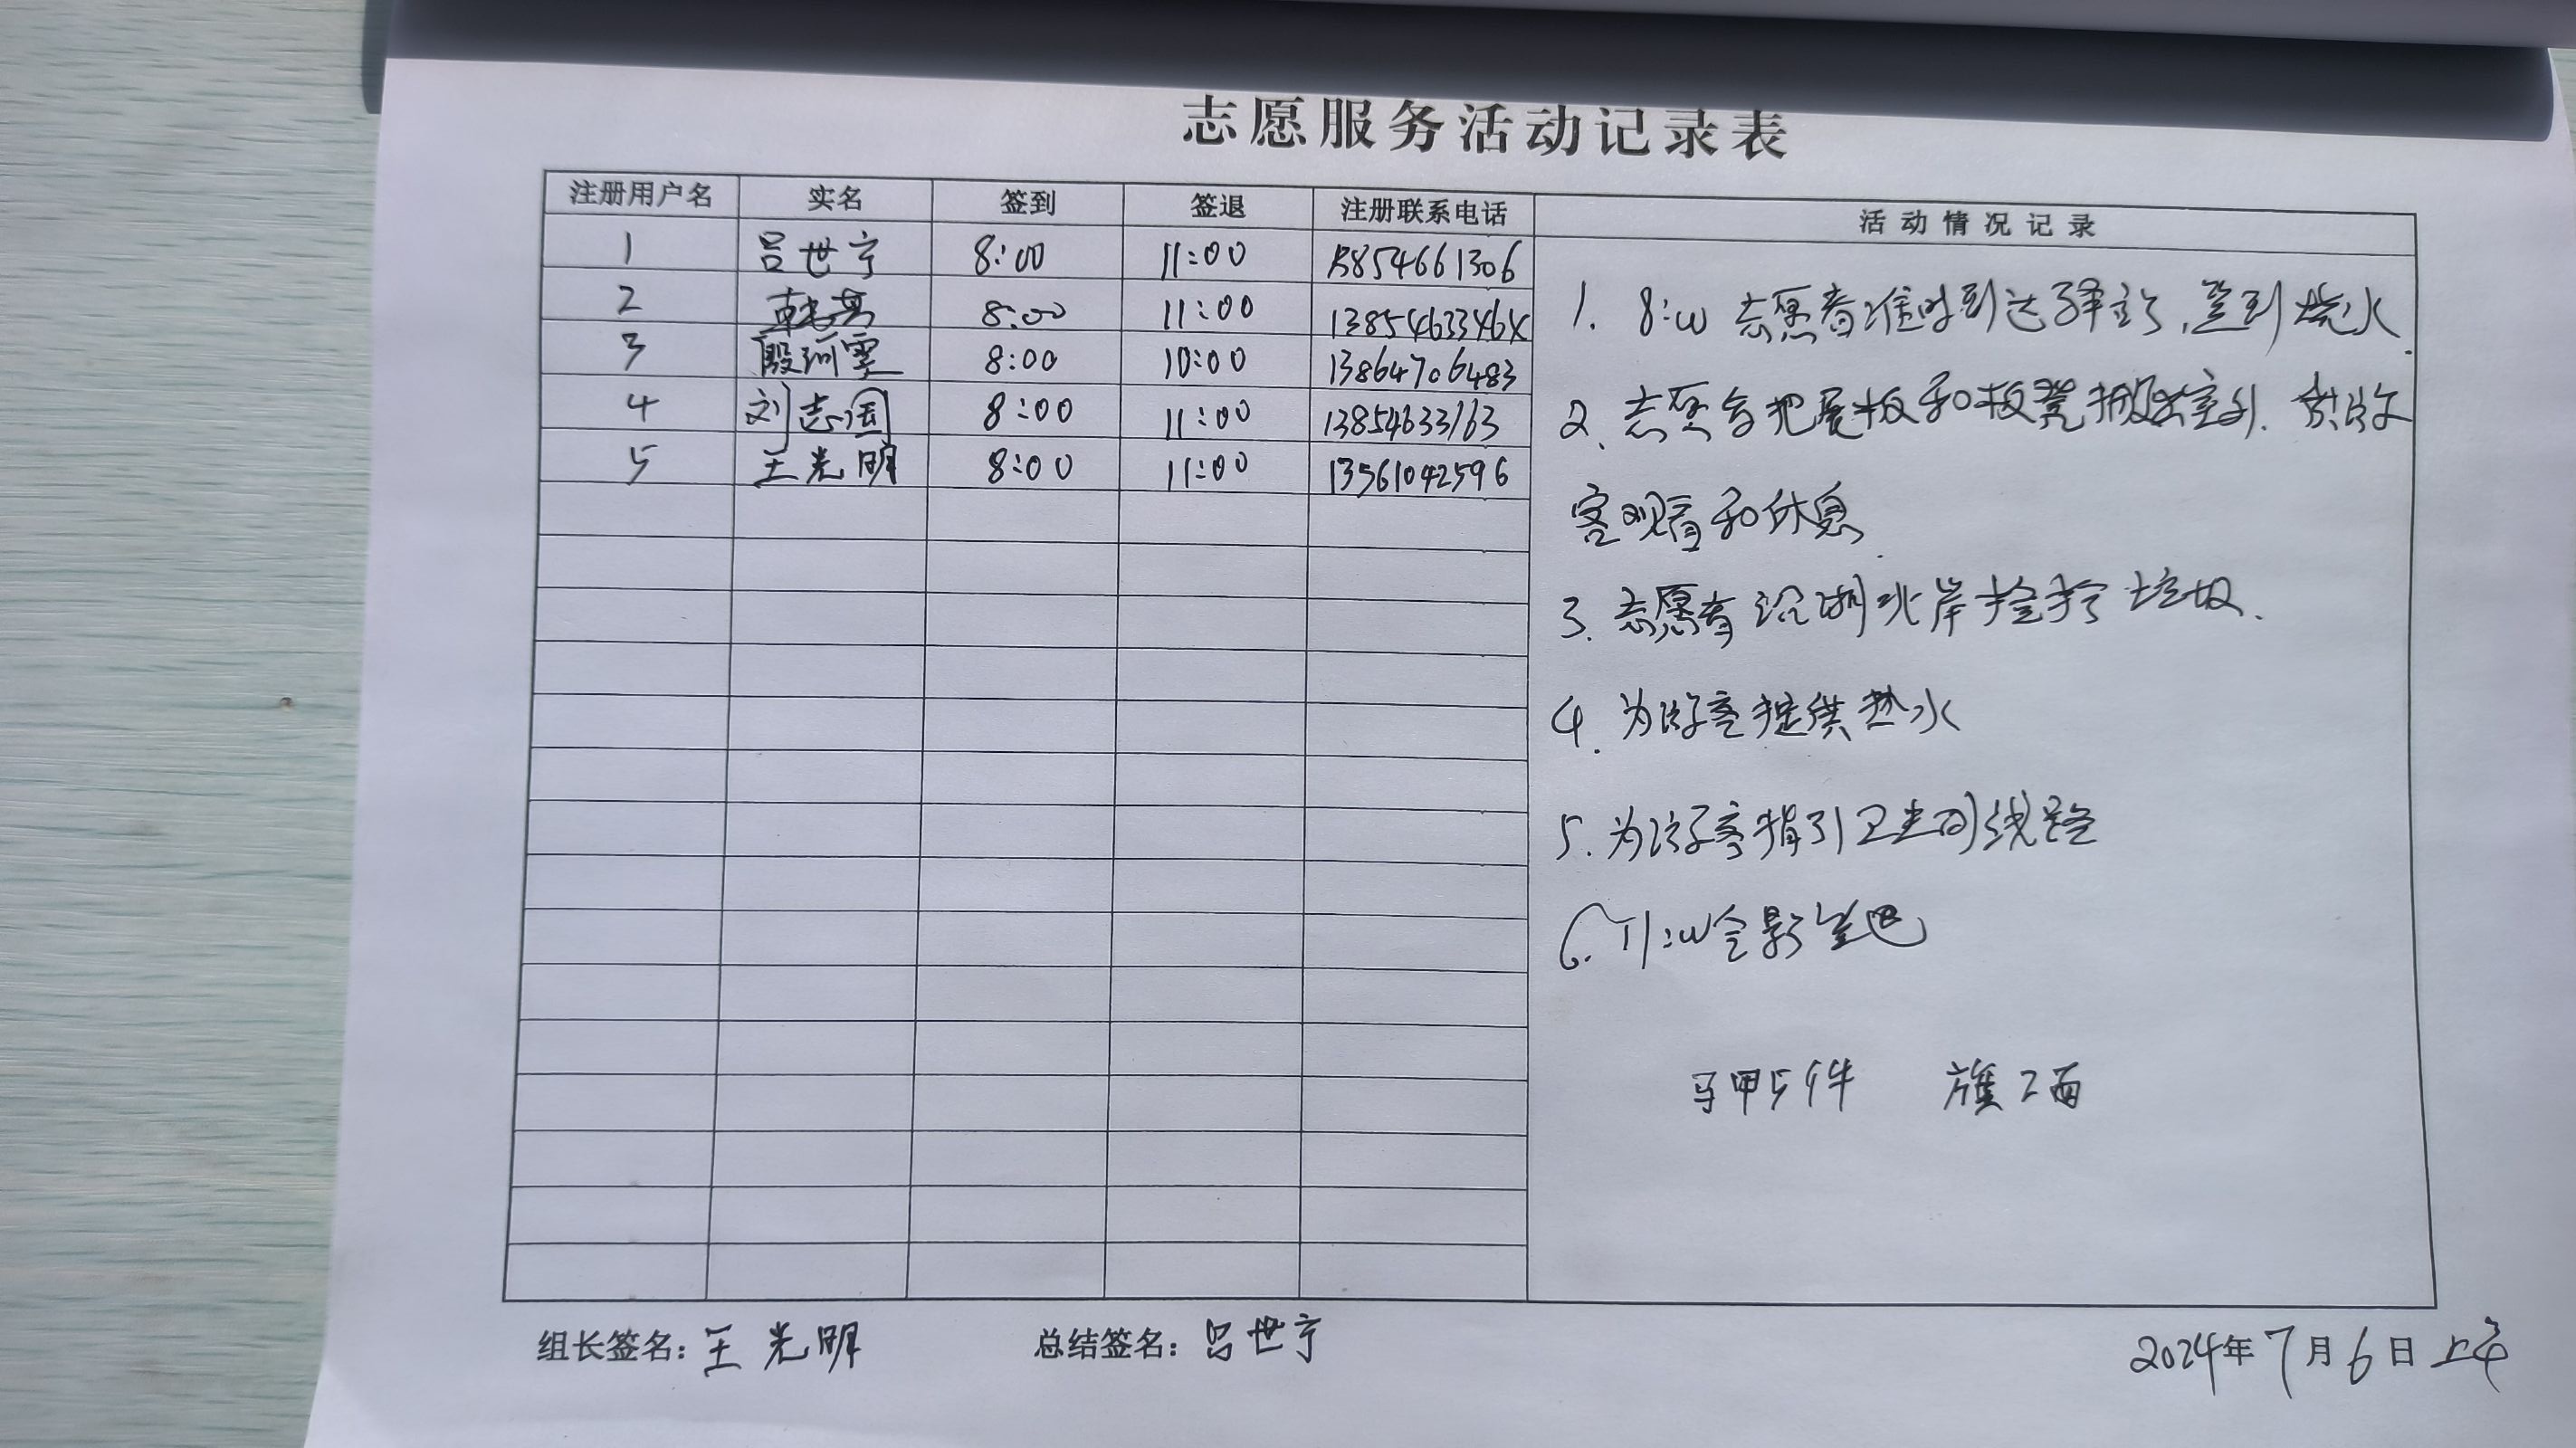 志愿服务活动记录表
注册用户名 实名 签到 签退 注册联系电话 活动情况记录
1 吕世宁 8:00 11:00 13854661306
2 韩其 8:00 11:00 1385463346X
3 殷河雯 8:00 10:00 13864706483
4 刘志国 8:00 11:00 13854633163
5 王光明 8:00 11:00 13561042596
1. 8:00 志愿者准时到达驿站,签到烧水.
2. 志愿者把展板和板凳搬出室外.供游
客观看和休息.
3. 志愿者沿湖北岸捡拾垃圾.
4. 为游客提供热水
5. 为游客指引卫生间线路
6. 11:00合影签退
马甲5件 旗2面
组长签名:王光明 总结签名:吕世宁 2024年7月6日上午